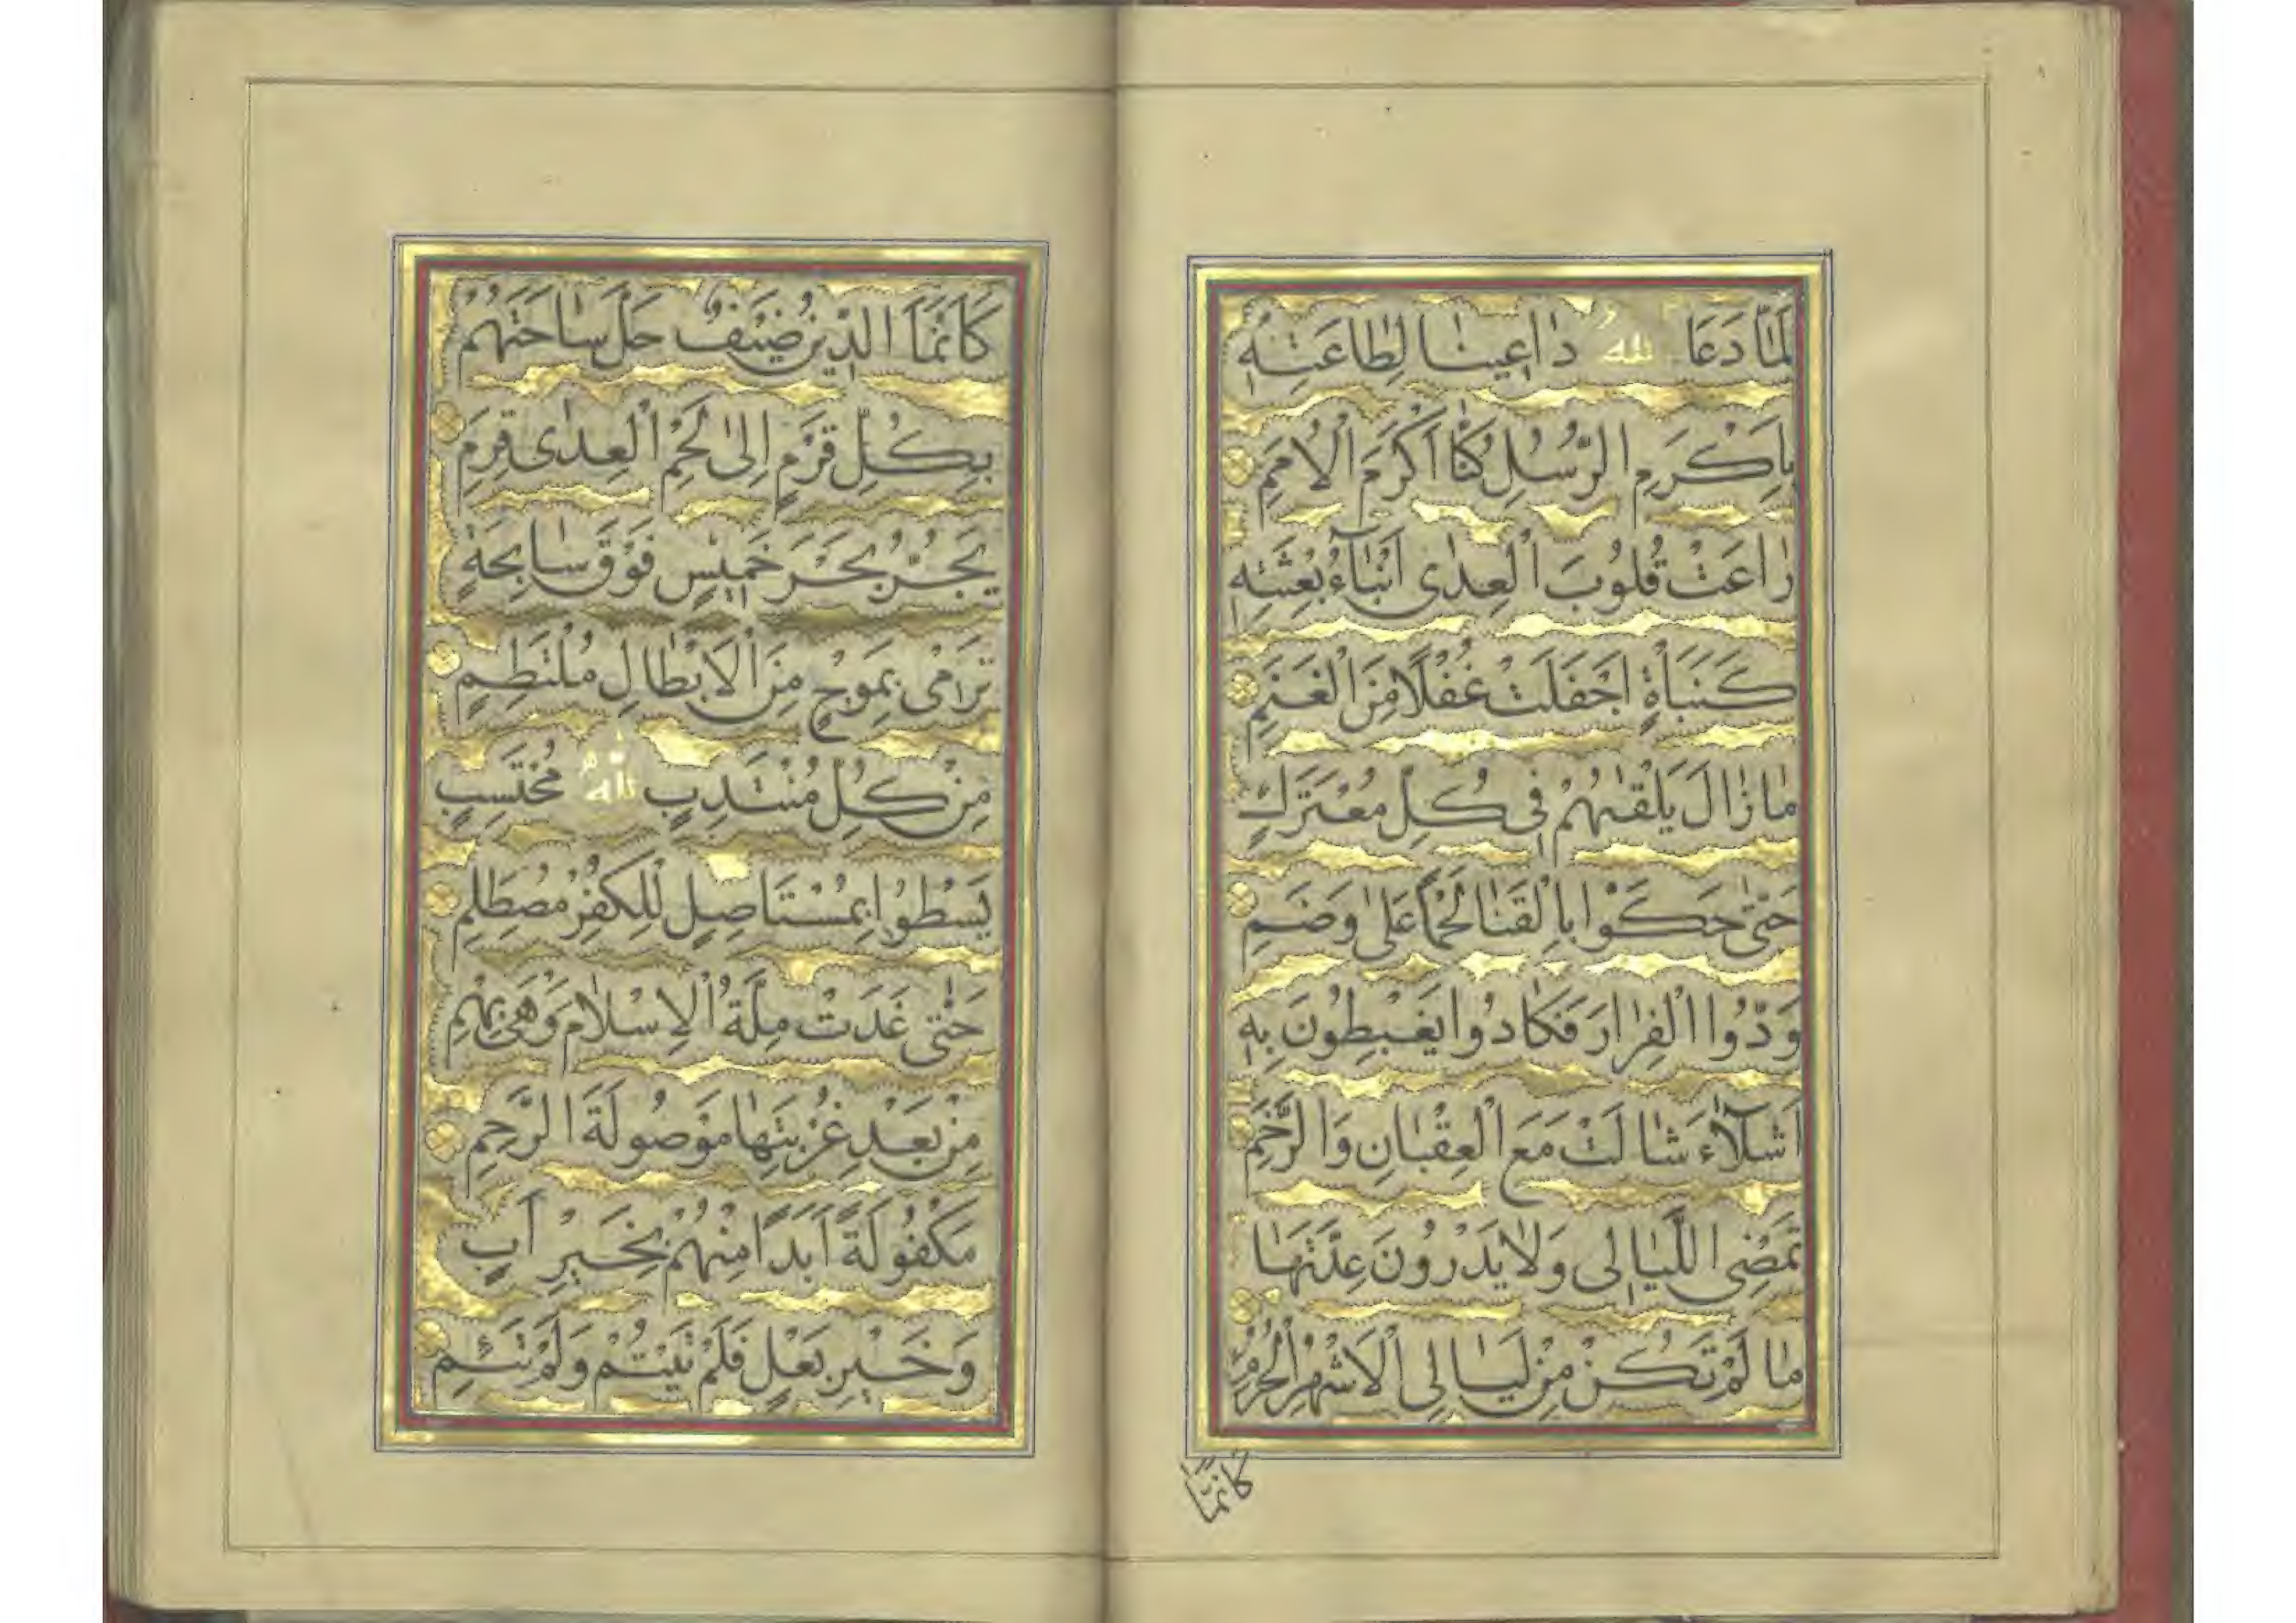 لَمَّا دَعَا اللهُ دَاعِينَا لِطَاعَتِهِ
بِاَكْرَمِ الرُّسُلِ كُنَّا اَكْرَمَ الْاُمَمِ
رَاعَتْ قُلُوبَ الْعِدٰى اَنْبَاءُ بِعْثَتِهِ
كَنَبْأَةٍ اَجْفَلَتْ غُفْلًا مِنَ الْغَنَمِ
مَا زَالَ يَلْقٰيهُمْ فِى كُلِّ مُعْتَرَكٍ
حَتّٰى حَكَوْا بِالْقَنَا لَحْمًا عَلٰى وَضَمِ
وَدُّوا الْفِرَارَ فَكَادُوا يَغْبِطُونَ بِهِ
اَشْلَآءَ شَالَتْ مَعَ الْعِقْبَانِ وَالرَّخَمِ
تَمْضِى اللَّيَالِى وَلَا يَدْرُونَ عِدَّتَهَا
مَا لَمْ تَكُنْ مِنْ لَيَالِى الْاَشْهُرِ الْحُرُمِ
كَاَنَّمَا
كَاَنَّمَا الدِّينُ ضَيْفٌ حَلَّ سَاحَتَهُمْ
بِكُلِّ قَرْمٍ اِلٰى لَحْمِ الْعِدٰى قَرِمِ
يَجُرُّ بَحْرَ خَمِيسٍ فَوْقَ سَابِحَةٍ
تَرْمٰى بِمَوْجٍ مِنَ الْاَبْطَالِ مُلْتَطِمٍ
مِنْ كُلِّ مُنْتَدِبٍ لِلّٰهِ مُحْتَسِبٍ
يَسْطُوا بِمُسْتَاْصِلٍ لِلْكُفْرِ مُصْطَلِمِ
حَتّٰى غَدَتْ مِلَّةُ الْاِسْلَامِ وَهْىَ بِهِمِ
مِنْ بَعْدِ غُرْبَتِهَا مَوْصُولَةَ الرَّحِمِ
مَكْفُولَةً اَبَدًا مِنْهُمْ بِخَيْرِ اَبٍ
وَخَيْرِ بَعْلٍ فَلَمْ تَيْتَمْ وَلَمْ تَئِمِ